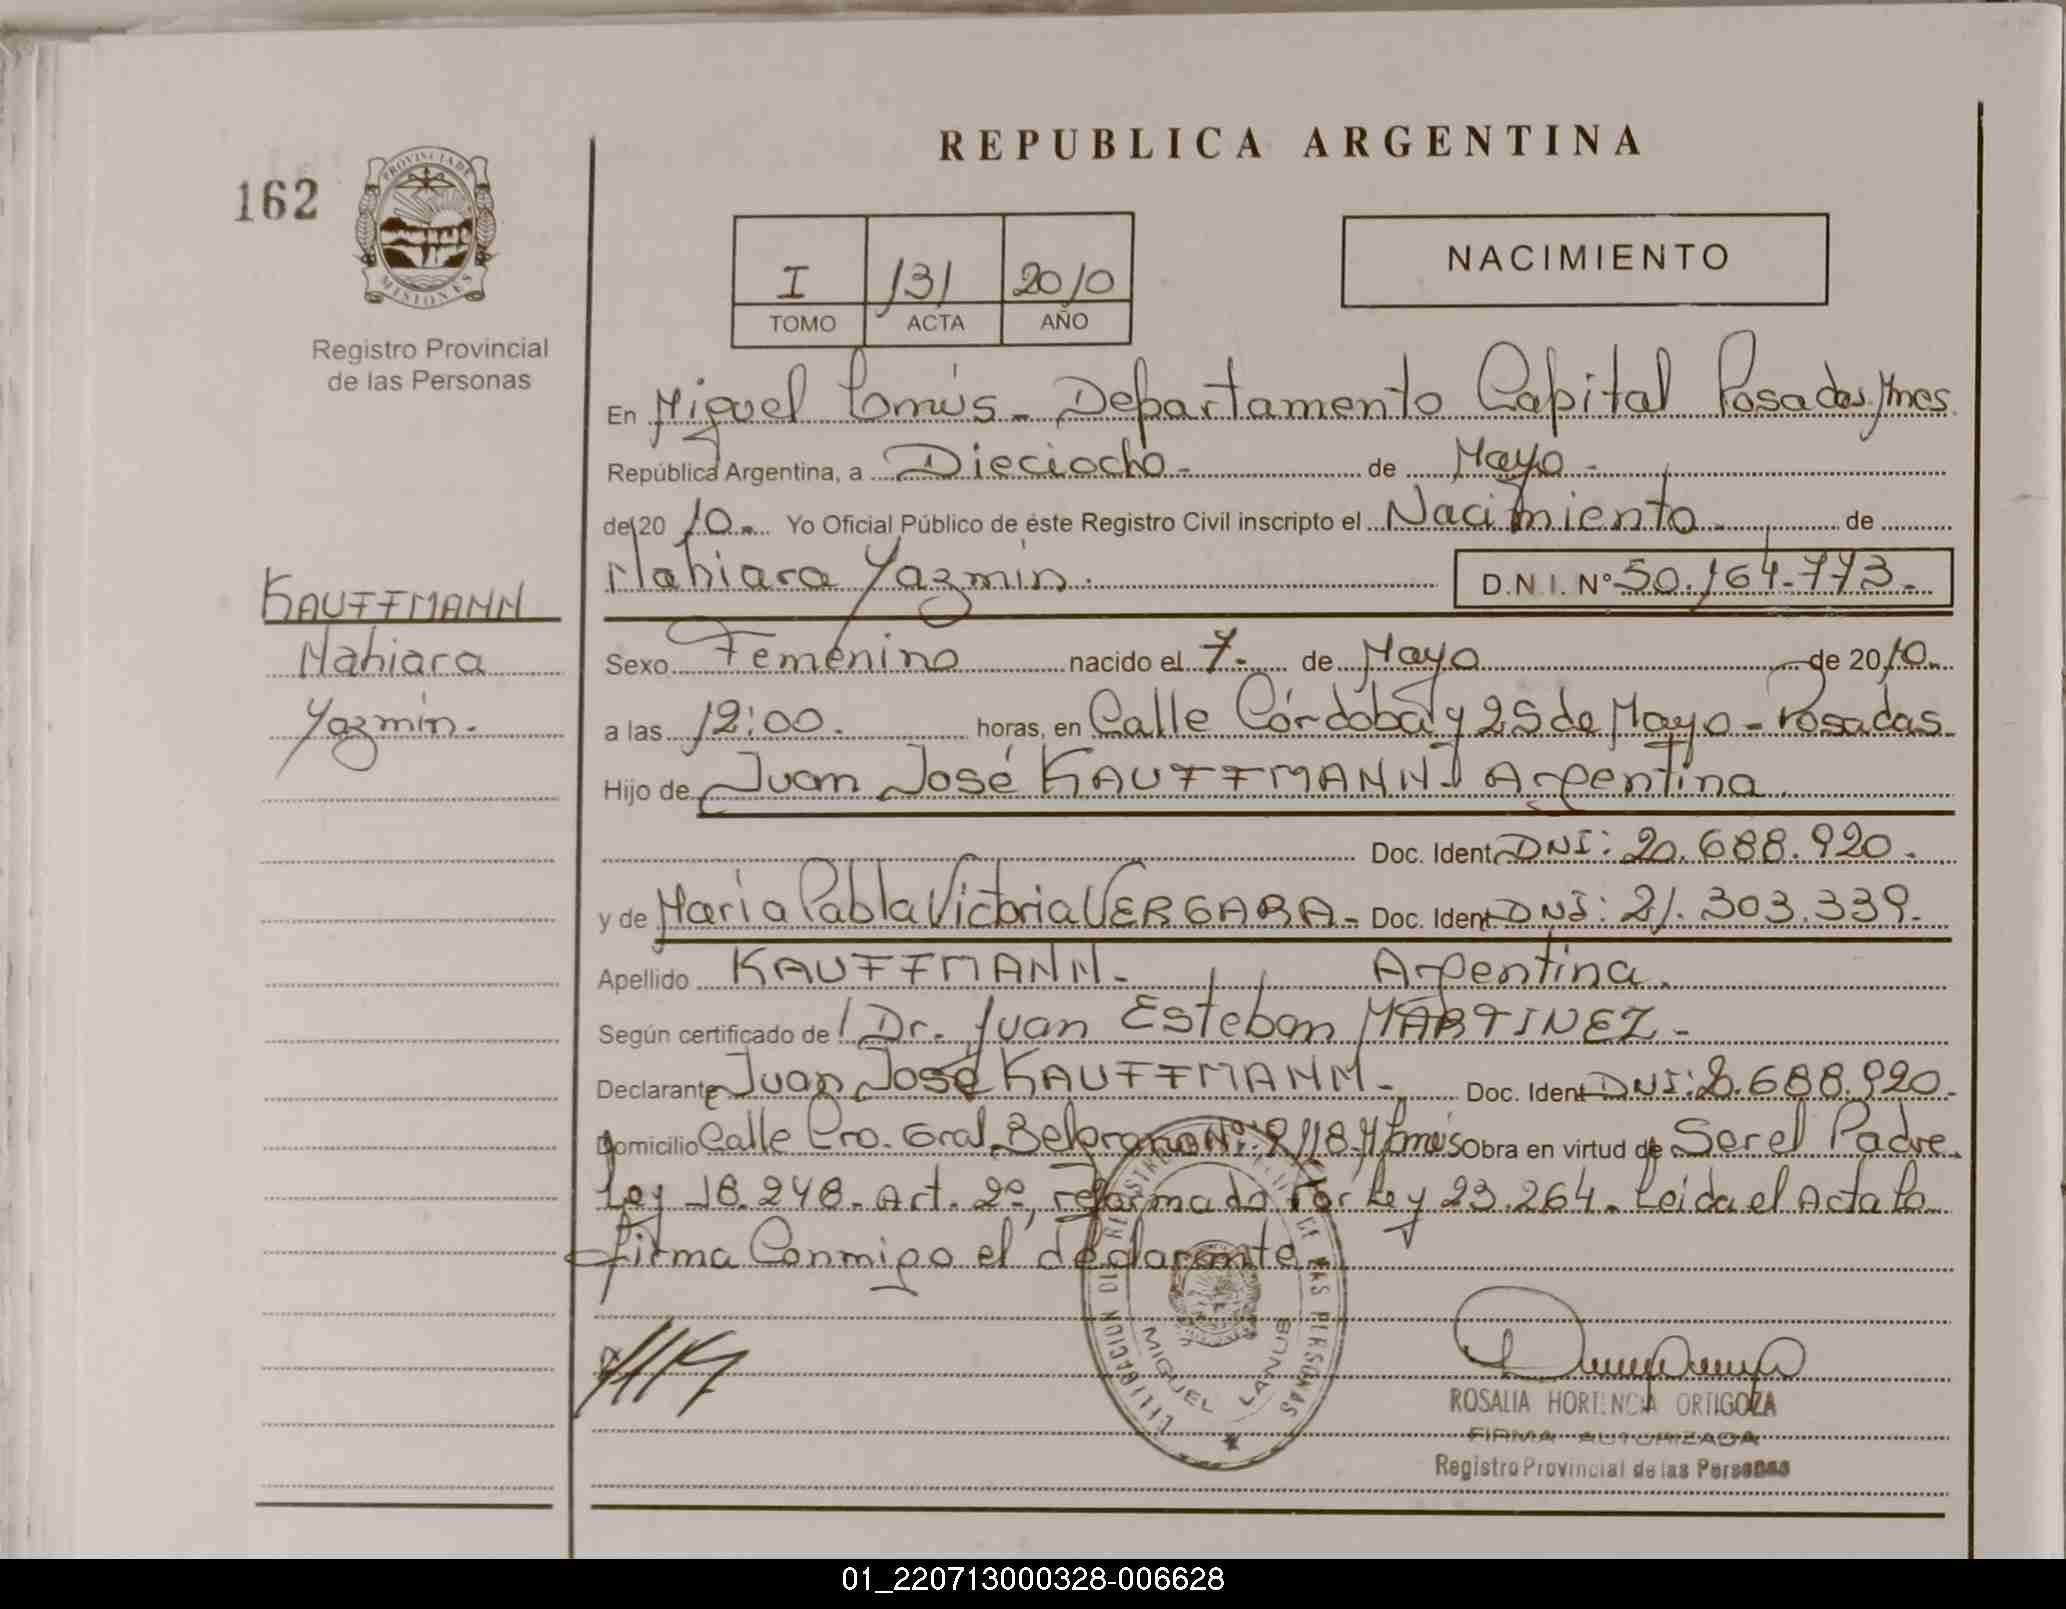 REPUBLICA ARGENTINA
162
PROVINCIA DE
MISIONES
Registro Provincial
de las Personas
I 131 2010
TOMO ACTA AÑO
NACIMIENTO
En Miguel Lanús - Departamento Capital Posadas Mnes
República Argentina, a Dieciocho - de Mayo -
de 20 10 - Yo Oficial Público de éste Registro Civil inscripto el Nacimiento - de
Nahiara Yazmin. D.N.I. Nº 50.164.773 -
KAUFFMANN
Nahiara
Yazmin.
Sexo Femenino nacido el 7 - de Mayo de 2010 -
a las 12:00. horas, en Calle Córdoba y 25 de Mayo - Posadas
Hijo de Juan José KAUFFMANN - Argentina
Doc. Ident DNI: 20.688.920.
y de María Pabla Victoria VERGARA - Doc. Ident DNI: 21.303.339.
Apellido KAUFFMANN - Argentina.
Según certificado de Dr. Juan Esteban MARTINEZ -
Declarante Juan José KAUFFMANN - Doc. Ident DNI: 20.688.920.
Domicilio Calle Gral. Belgrano Nº: Lanús Obra en virtud de Ser el Padre.
Ley 18.248 - Art. 2º, reformado Por Ley 23.264 - Leida el Acta la
firma Conmigo el declarante.
MIGUEL LANUS
DE LAS PERSONAS
ROSALIA HORTENCIA ORTIGOZA
FIRMA AUTORIZADA
Registro Provincial de las Personas
01_220713000328-006628